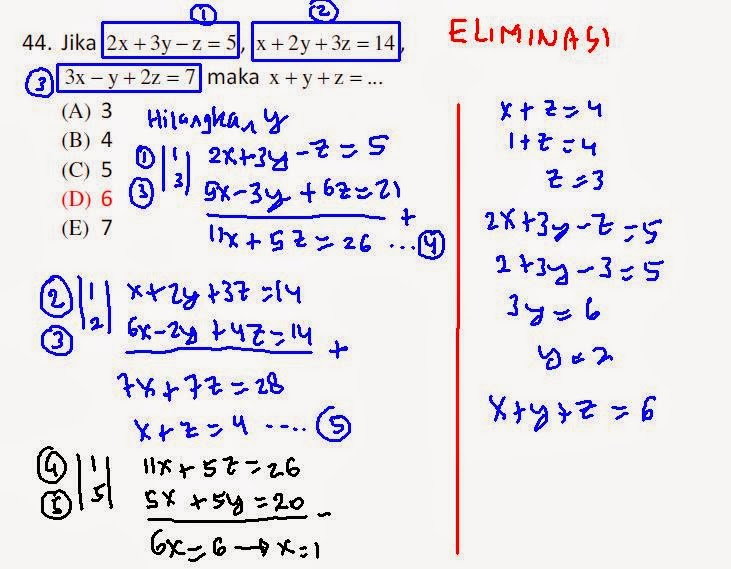 ①
②
44. Jika 2x + 3y − z = 5, x + 2y + 3z = 14,
③ 3x − y + 2z = 7 maka x + y + z = ...
(A) 3
(B) 4
(C) 5
(D) 6
(E) 7
Hilangkan y
① |1| 2x+3y−z=5
③ |3| 9x−3y+6z=21 +
11x+5z=26 ...④
② |1| x+2y+3z=14
③ |2| 6x−2y+4z=14 +
7x+7z=28
x+z=4 ....⑤
④ |1| 11x+5z=26
⑤ |5| 5x+5y=20 −
6x=6→x=1
ELIMINASI
x+z=4
1+z=4
z=3
2x+3y−z=5
2+3y−3=5
3y=6
y=2
x+y+z=6